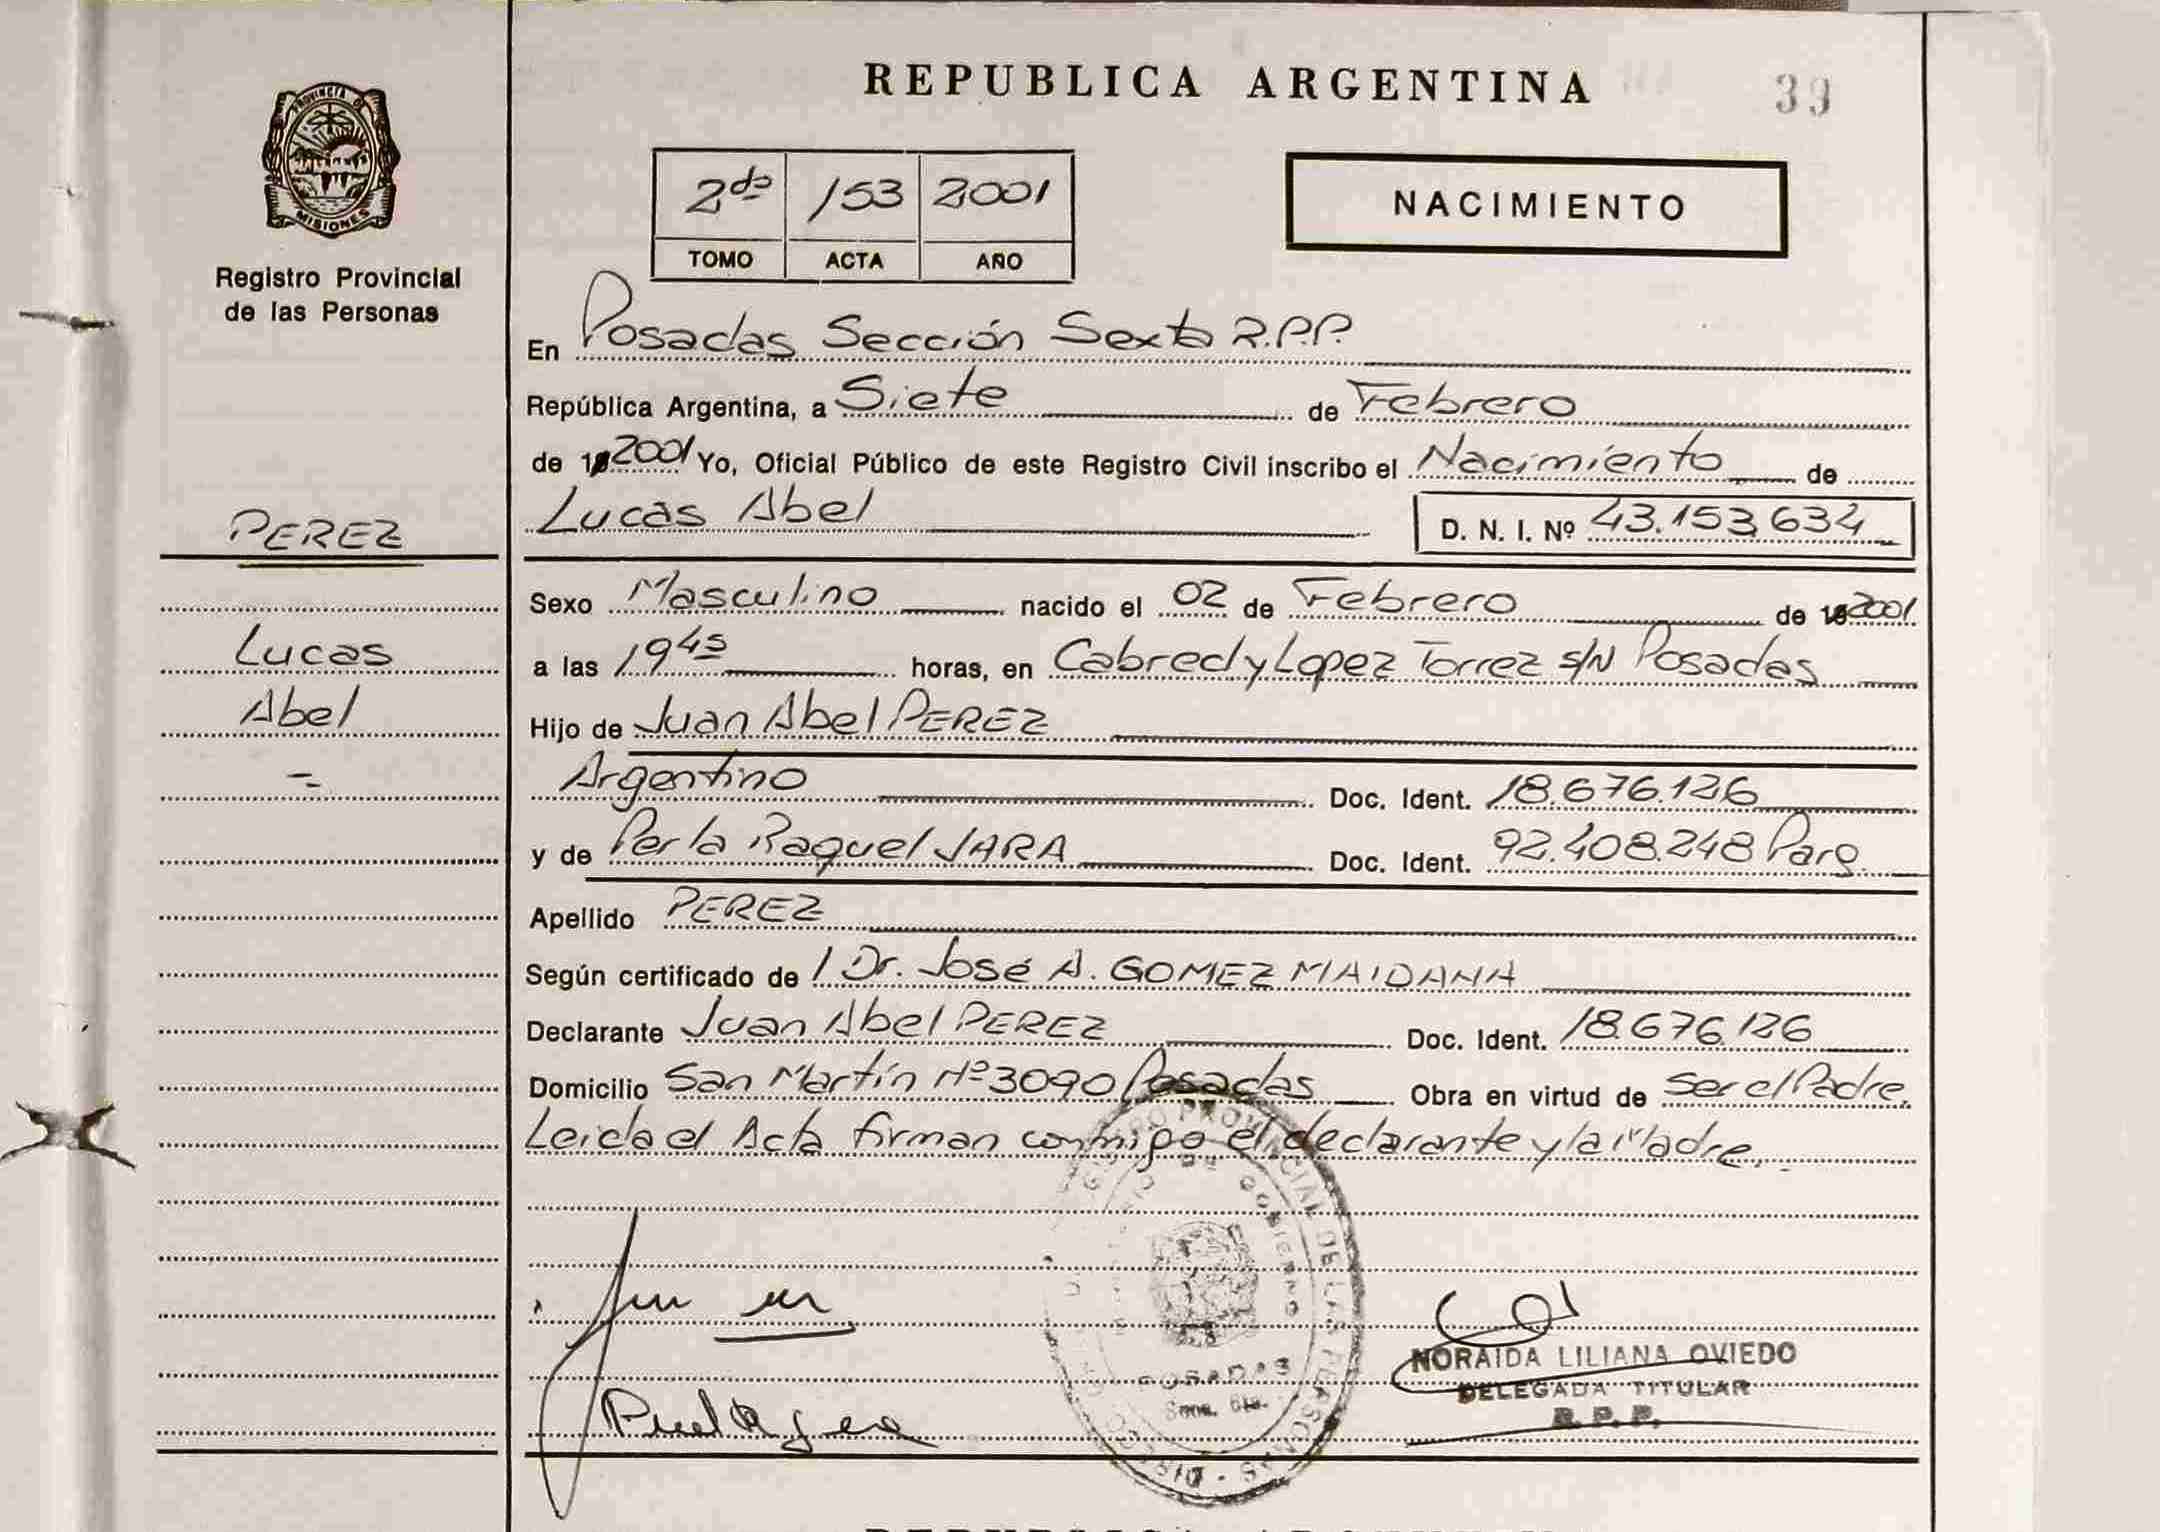 REPUBLICA ARGENTINA
39
PROVINCIA DE
MISIONES
Registro Provincial
de las Personas
2do /53 2001
TOMO ACTA AÑO
NACIMIENTO
En Posadas Sección Sexta R.P.P.
República Argentina, a Siete de Febrero
de 2001 Yo, Oficial Público de este Registro Civil inscribo el Nacimiento de
PEREZ
Lucas Abel D. N. I. Nº 43.153.634
Sexo Masculino nacido el 02 de Febrero de 2001
Lucas
a las 19 45 horas, en Cabred y Lopez Torrez s/N Posadas
Abel
Hijo de Juan Abel PEREZ
Argentino Doc. Ident. 18.676.126
y de Perla Raquel JARA Doc. Ident. 92.408.248 Parg.
Apellido PEREZ
Según certificado de / Dr. José A. GOMEZ MAIDANA
Declarante Juan Abel PEREZ Doc. Ident. 18.676.126
Domicilio San Martín Nº 3090 Posadas Obra en virtud de Ser el Padre.
Leida el Acta firman conmigo el declarante y la Madre.
REGISTRO PROVINCIAL DE LAS PERSONAS
GOBIERNO
POSADAS
Secc. 6ta.
NORAIDA LILIANA OVIEDO
DELEGADA TITULAR
R. P. P.